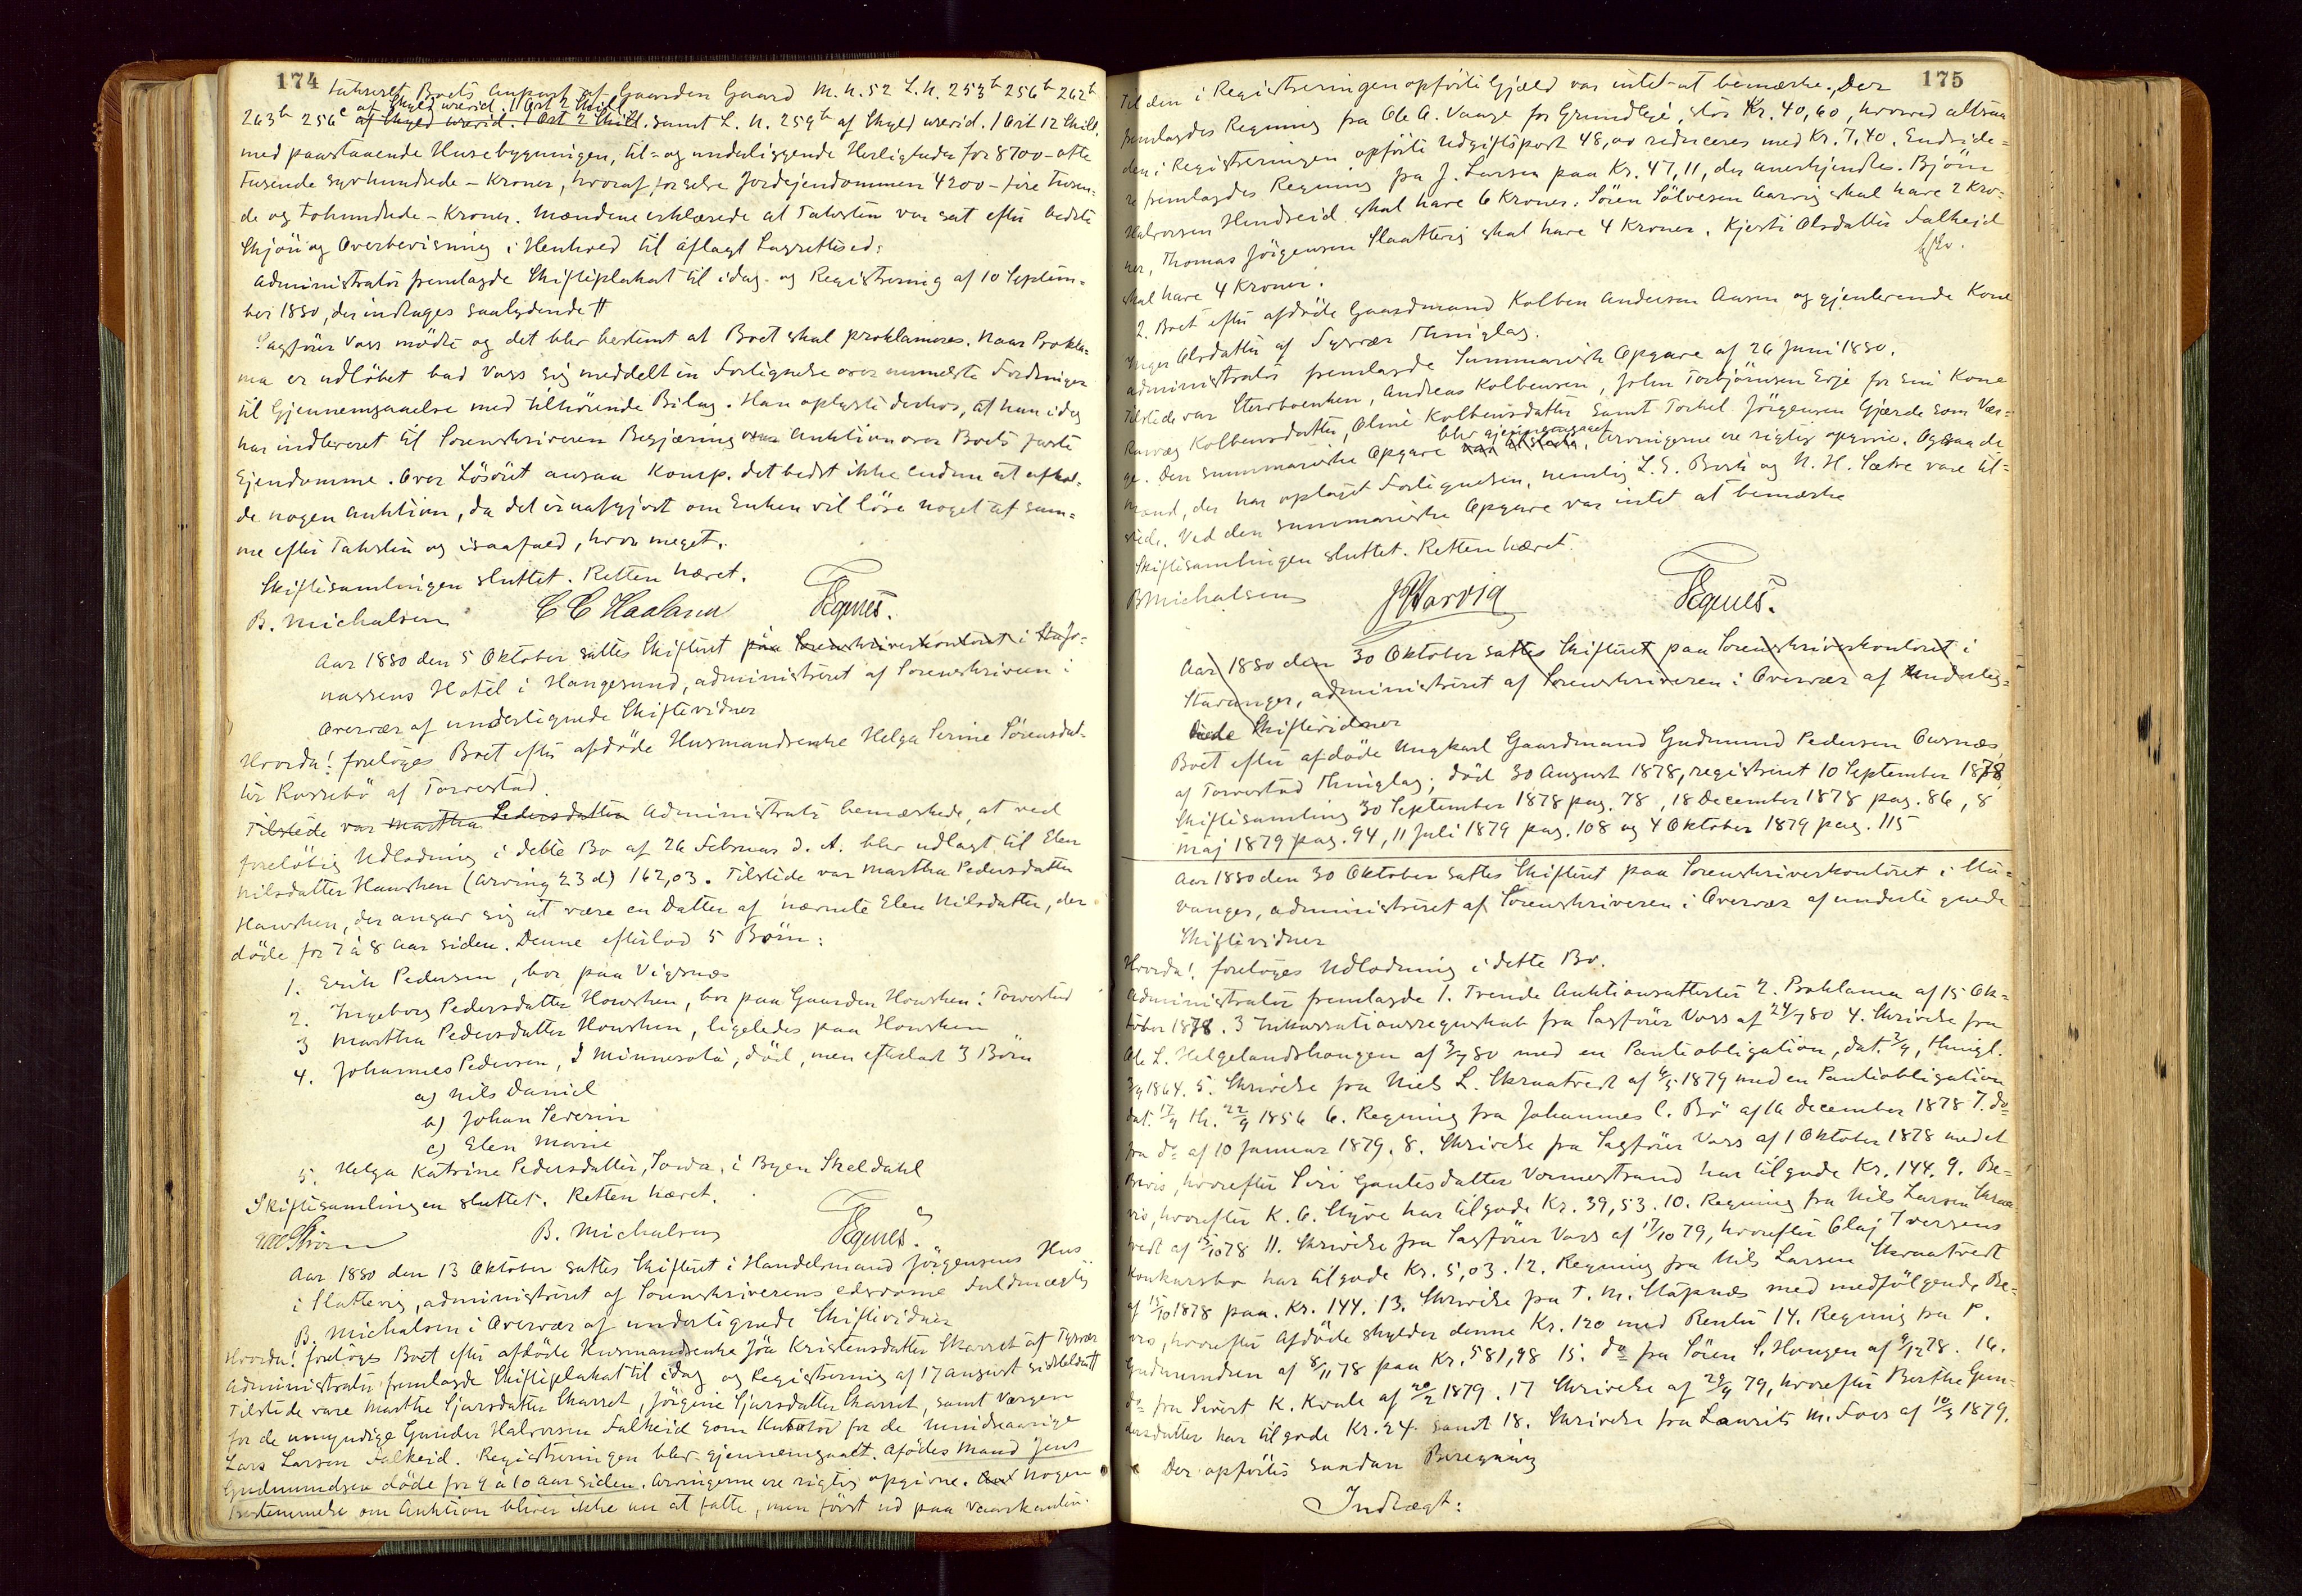 174
taxeret Boets Anpart af Gaarden Gaard M. N. 52 L. N. 253b 256b 262b
263b 256c af Skyld urevid. 1 Ort 2 Skill. samt L. N. 259b af Skyld urevid. 1 Ort 12 Skill.
med paastaaende Husebygninger, til- og underliggende Herligheder for 8700 - otte
tusende syvhundrede - Kroner, hvoraf for selve Jordejendommen 4200 - fire tusen-
de og tohundrede - Kroner. Mændene erklærede at Taksten var sat efter bedste
Skjøn og Overbevisning i Henhold til aflagt Lagrettesed.
Administrator fremlagde Skifteplakat til idag og Registrering af 10 Septem-
ber 1880, der indtages saalydende #
Sagfører Vass mødte og det blev bestemt at Boet skal proklameres. Naar Prokla-
ma er udløbet bad Vass sig meddelt en Fortegnelse over anmeldte Fordringer
til Gjennemgaaelse med tilhørende Bilag. Han oplyste derhos, at han idag
har indleveret til Sorenskriveren Begjæring om Auktion over Boets faste
Ejendomme. Over Løsøret ansaa Komp. det bedst ikke endnu at afhol-
de nogen Auktion, da det er uafgjort om Enken vil løse noget af sam-
me efter Taksten og isaafald, hvor meget.
Skiftesamlingen sluttet. Retten hævet.
B. Michalsen C C Haaland Egenes.
Aar 1880 den 5 Oktober sattes Skifteret paa Sorenskriverkontoret i Sta Jo-
nassens Hotel i Haugesund, administreret af Sorenskriveren i
Overvær af undertegnede Skiftevidner
Hvorda! foretoges Boet efter afdøde Husmandsenke Helga Serine Sørensdat-
ter Rossebø af Torvestad.
Tilstede var Martha Pedersdatter Administrator bemærkede, at ved
foreløbig Udlodning i dette Bo af 26 Februar d. A. blev udlagt til Elen
Nilsdatter Hausken (Arving 23 d) 162,03. Tilstede var Martha Pedersdatter
Hausken, der angav sig at være en Datter af nævnte Elen Nilsdatter, der
døde for 7 à 8 Aar siden. Denne efterlod 5 Børn:
1. Erik Pedersen, bor paa Vigsnæs
2. Ingeborg Pedersdatter Hausken, bor paa Gaarden Hausken i Torvestad
3 Martha Pedersdatter Hausken, ligeledes paa Hausken
4. Johannes Pedersen, I Minnesota, død, men efterladt 3 Børn
a) Nils Daniel
b) Johan Severin
c) Elen Marie
5. Helga Katrine Pedersdatter, Iowa, i Byen Skeldahl
Skiftesamlingen sluttet. Retten hævet.
B. Michalsen Egenes.
Aar 1880 den 13 Oktober sattes Skifteret i Handelsmand Jørgensens Hus
i Slattevig, administreret af Sorenskriverens edsvorne Fuldmægtig
B. Michalsen i Overvær af undertegnede Skiftevidner
Hvorda! foretoges Boet efter afdøde Husmandsenke Jøa Kristensdatter Skarret af Tysvær
Administrator fremlagde Skifteplakat til idag og Registrering af 17 August sidstleden #
Tilstede vare Marthe Gjørsdatter Skarret, Jørgine Gjørsdatter Skarret, samt Værgen
for de umyndige Gunder Halvorsen Falkeid som Kurator for de mindreaarige
Lars Larsen Falkeid. Registreringen blev gjennemgaaet. Afdødes Mand Jens
Gudmundsen døde for 9 à 10 Aar siden. Arvingerne ere rigtig opgivne. Nogen
Bestemmelse om Auktion bliver ikke nu at fatte, men først ud paa Vaarkanten.
175
Til den i Registreringen opførte Gjæld var intet at bemærke. Der
fremlagdes Regning fra Ole A. Vaage for Grundleje, stor Kr. 40,60, hvorved altsaa
den i Registreringen opførte Udgiftspost 48,00 reduceres med Kr. 7,40. Endvide-
re fremlagdes Regning fra J. Larsen paa Kr. 47,11, der anerkjendtes. Bjørn
Halvorsen Hundseid skal have 6 Kroner. Søren Sølvesen Aarvig skal have 2 Kro-
ner, Thomas Jørgensen Slaattevig skal have 4 Kroner. Kjersti Olsdatter Falkeid
skal have 4 Kroner.
2. Boet efter afdøde Gaardmand Kolben Andersen Aasen og gjenlevende Kone
Inger Olsdatter af Tysvær Thinglag.
Administrator fremlagde Summarisk Opgave af 26 Juni 1880.
Tilstede var Sterboenken, Andreas Kolbensen, John Torbjørnsen Erje for sin Kone
Ranveg Kolbensdatter, Oline Kolbensdatter samt Torkel Jørgensen Gjerde som Vær-
ge. Den summariske Opgave var tilstede blev gjennemgaaet. Arvingerne ere rigtig opgivne. Ogsaa de
Mænd, der har optaget Fortegnelsen, nemlig L. E. Borti og N. H. Sætre vare til-
stede. Ved den summariske Opgave var intet at bemærke
Skiftesamlingen sluttet. Retten hævet.
B Michalsen Egenes.
Aar 1880 den 30 Oktober sattes Skifteret paa Sorenskriverkontoret i
Stavanger, administreret af Sorenskriveren i Overvær af Underteg-
nede Skiftevidner
Boet efter afdøde Ungkarl Gaardmand Gudmund Pedersen Ousnæs
af Torvestad Thinglag; død 30 August 1878, registreret 10 September 1878
Skiftesamling 30 September 1878 pag. 78, 18 December 1878 pag. 86, 8
Maj 1879 pag. 94, 11 Juli 1879 pag. 108 og 4 Oktober 1879 pag. 115
Aar 1880 den 30 Oktober sattes Skifteret paa Sorenskriverkontoret i Sta-
vanger, administreret af Sorenskriveren i Overvær af undertegnede
Skiftevidner
Hvorda! foretoges Udlodning i dette Bo.
Administrator fremlagde 1. Trende Auktionsattester 2. Proklama af 15 Ok-
tober 1878. 3 Inkassationsregnskab fra Sagfører Vass af 24/7 80 4. Skrivelse fra
Ole L. Helgelandshaugen af 3/7 80 med en Panteobligation, dat. 3/9, thingl.
3/9 1864. 5. Skrivelse fra Niels L. Skraatvedt af 6/5 1879 med en Panteobligation
dat. 17/9 th. 22/9 1856 6. Regning fra Johannes C. Bø af 16 December 1878 7. do
fra do af 10 Januar 1879. 8. Skrivelse fra Sagfører Vass af 1 Oktober 1878 med et
Bevis, hvorefter Siri Gautesdatter Vormestrand har tilgode Kr. 144. 9. Be-
vis, hvorefter K. G. Styve har tilgode Kr. 39,53. 10. Regning fra Nils Larsen Skraa-
tvedt af 15/10 78 11. Skrivelse fra Sagfører Vass af 17/10 79, hvorefter Olaj Iversens
Konkursbo har tilgode Kr. 5,03. 12. Regning fra Nils Larsen Skraatvedt
af 15/10 1878 paa Kr. 144. 13. Skrivelse fra T. M. Støpnæs med medfølgende Be-
vis, hvorefter Afdøde skylder denne Kr. 120 med Renter 14. Regning fra P.
Gudmundsen af 8/11 78 paa Kr. 581,98 15. do fra Søren S. Haugen af 9/12 78. 16.
do fra Sivert K. Kvale af 20/2 1879. 17 Skrivelse af 29/9 79, hvorefter Berthe Gun-
dersdatter har tilgode Kr. 24. samt 18. Skrivelse fra Laurits M. Foss af 10/3 1879.
Der opførtes saadan Beregning
Indtægt: